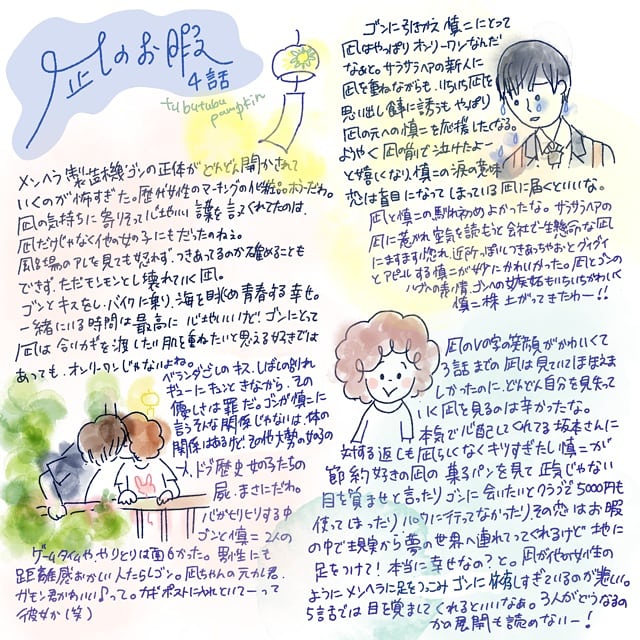 凪のお暇
4話
tubutubu
pampkin
メンヘラ製造機ゴンの正体がどんどん開かされて
いくのが怖すぎた。歴代女性のマーキングの化粧品ホラーだわ。
凪の気持ちに寄りそって心地いい言葉をくれてたのは、
凪だけじゃなく他の女の子にもだったのねぇ。
風呂場のアレを見ても怒れず、つきあってるのか確めることも
できず、ただモンモンとし壊れていく凪。
ゴンとキスをし、バイクに乗り、海を眺め青春する幸せ。
一緒にいる時間は最高に心地いいけど、ゴンにとって
凪は合いカギを渡したい肌を重ねたいと思える好きでは
あっても、オンリーワンじゃないよね。
ベランダごしのキス、しばしの別れ
ギューにキュンときながら、その
優しさは罪だ。ゴンが慎二に
言うそんな関係じゃないは、体の
関係はあるけど、その他大勢の女の子の
メ、ドゥ歴史女の子たちの
屍、まさにだわ。
バがピリピリする中
ゴンと慎二2人の
ゲームタイムや、やりとりは面白かった。男性にも
距離感おかしい人たらしゴン。凪ちゃんの元カレ君、
ガモン君かわいい♪って。カギポストに入れといてーって
彼女か(笑)
ゴンに引きかえ慎二にとって
凪はやっぱりオンリーワンなんだ
なぁと。サラサラヘアの新人に
凪を重ねながらも、いちいち凪を
思い出し食事に誘うもやっぱり
凪の元への慎二を応援したくなる。
ようやく凪の前で泣けたよー
と嬉しくなり慎二の涙の意味
恋は盲目になってしまっている凪に届くといいな。
凪と慎二の馴れ初めよかったな。サラサラヘアの
凪に惹かれ空気を読もうと会社で一生懸命な凪
にますます惚れ、近所っぽいしつきあっちゃおとグイグイ
とアピールする慎二が妙にかわいかった。凪とゴンの
ハグへの表情、ゴンへの嫉妬もいちいちかわいく
慎二株上がってきたわー!!
凪のVの字の笑顔がかわいくて
3話までの凪は見ていてほほえま
しかったのに、どんどん自分を見失って
いく凪を見るのは辛かったな。
本気で心配してくれてる坂本さんに
対する返しも凪らしくなくキツすぎたし慎二が
節約好きの凪の菓子パンを見て正気じゃない
目を覚ませと言ったりゴンに会いたいとクラブで5000円も
使ってしまったりハロワに行ってなかったり、その恋はお暇
の中で現実から夢の世界へ連れてってくれるけど地に
足をつけて!本当に幸せなの?と。凪が他の女性の
ようにメンヘラに足をつっこみゴンに依存しすぎているのが悲しい。
5話では目を覚ましてくれるといいなぁ。3人がどうなるの
かの展開も読めないー!